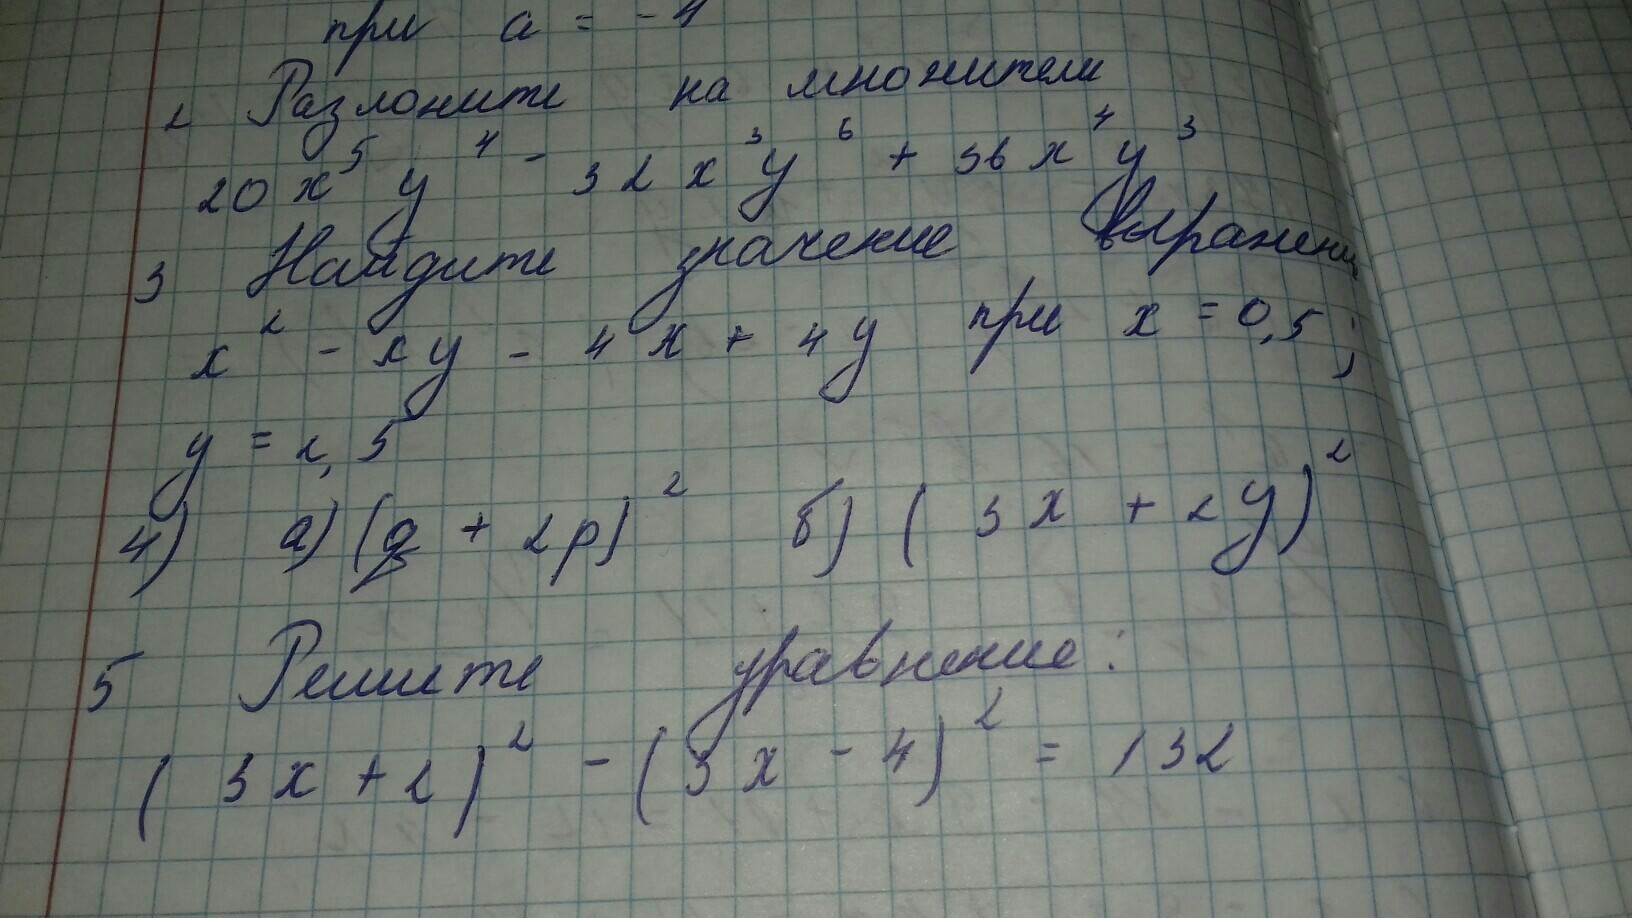 при a = -4
2 Разложите на множители
20x⁵y⁴ - 32x³y⁶ + 36x⁴y³
3 Найдите значение выражени
x² - xy - 4x + 4y при x = 0,5;
y = 2,5
4) а) (q + 2p)² б) (3x + 2y)²
5 Решите уравнение:
(3x + 2)² - (3x - 4)² = 132